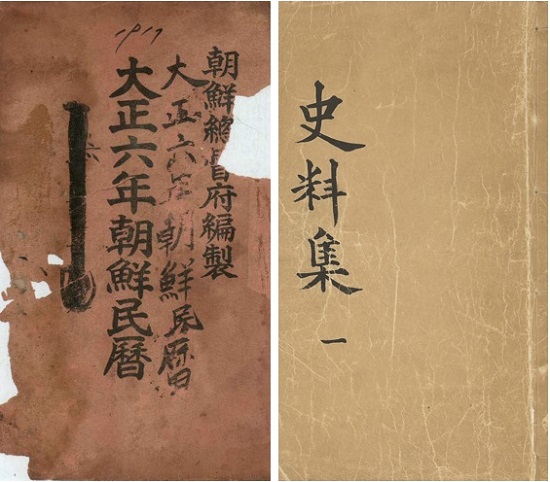 1917
朝鮮總督府編製
大正六年朝鮮民曆
大正六年朝鮮民曆
史料集
一